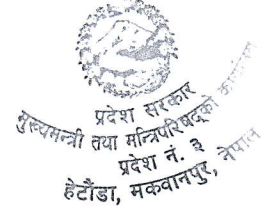 प्रदेश सरकार
मुख्यमन्त्री तथा मन्त्रिपरिषद्को कार्यालय
प्रदेश नं. ३
हेटौंडा, मकवानपुर, नेपाल